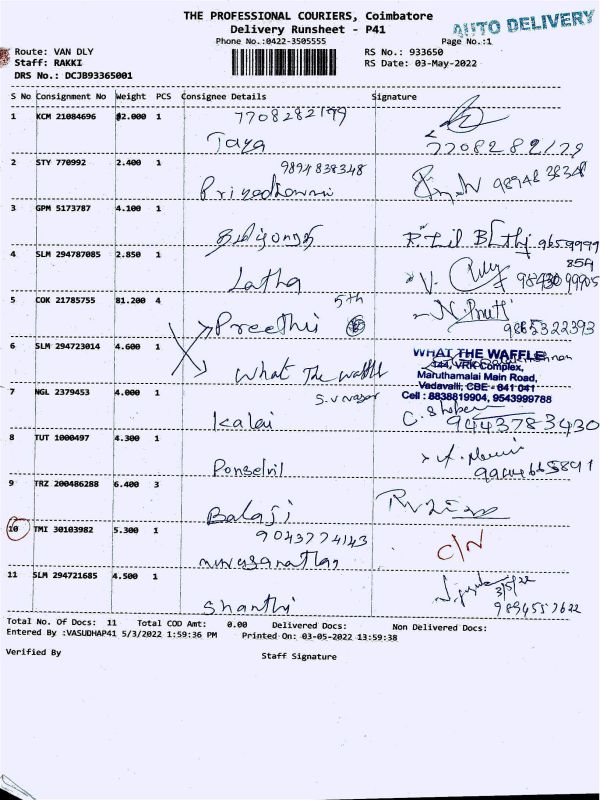 THE PROFESSIONAL COURIERS, Coimbatore
AUTO DELIVERY
Delivery Runsheet - P41
Phone No.:0422-3505555
Page No.:1
Route: VAN DLY
RS No.: 933650
Staff: RAKKI
RS Date: 03-May-2022
DRS No.: DCJB93365001
S No Consignment No Weight PCS Consignee Details Signature
1 KCM 21084696 82.000 1 7708282179
Jaya 7708282179
2 STY 770992 2.400 1 9894838348
Priyadharsini
3 GPM 5173787 4.100 1
4 SLM 294787085 2.850 1
Latha
5 COK 21785755 81.200 4 5th
Preethi 9865322393
6 SLM 294723014 4.600 1
What The waffle
WHAT THE WAFFLE
144, VRK Complex,
Maruthamalai Main Road,
Vadavalli, CBE - 641 041
Cell : 8838819904, 9543999788
7 NGL 2379453 4.000 1 S.V nagar
Kalai 9443783430
8 TUT 1000497 4.300 1
Ponselvi
9 TRZ 200486288 6.400 3
Balaji
10 TMI 30103982 5.300 1 9043774143
C/N
11 SLM 294721685 4.500 1
Shanthi 3/5/22
Total No. Of Docs: 11 Total COD Amt: 0.00 Delivered Docs: Non Delivered Docs:
Entered By :VASUDHAP41 5/3/2022 1:59:36 PM Printed On: 03-05-2022 13:59:38
Verified By Staff Signature